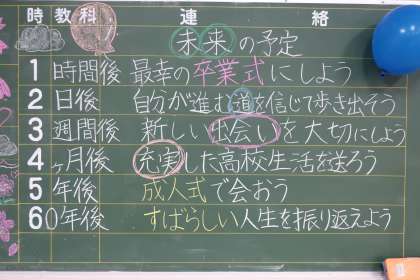 時 教科 連 絡
未来の予定
1 時間後 最幸の卒業式にしよう
2 日後 自分が進む道を信じて歩き出そう
3 週間後 新しい出会いを大切にしよう
4 ヶ月後 充実した高校生活を送ろう
5 年後 成人式で会おう
60年後 すばらしい人生を振り返えよう